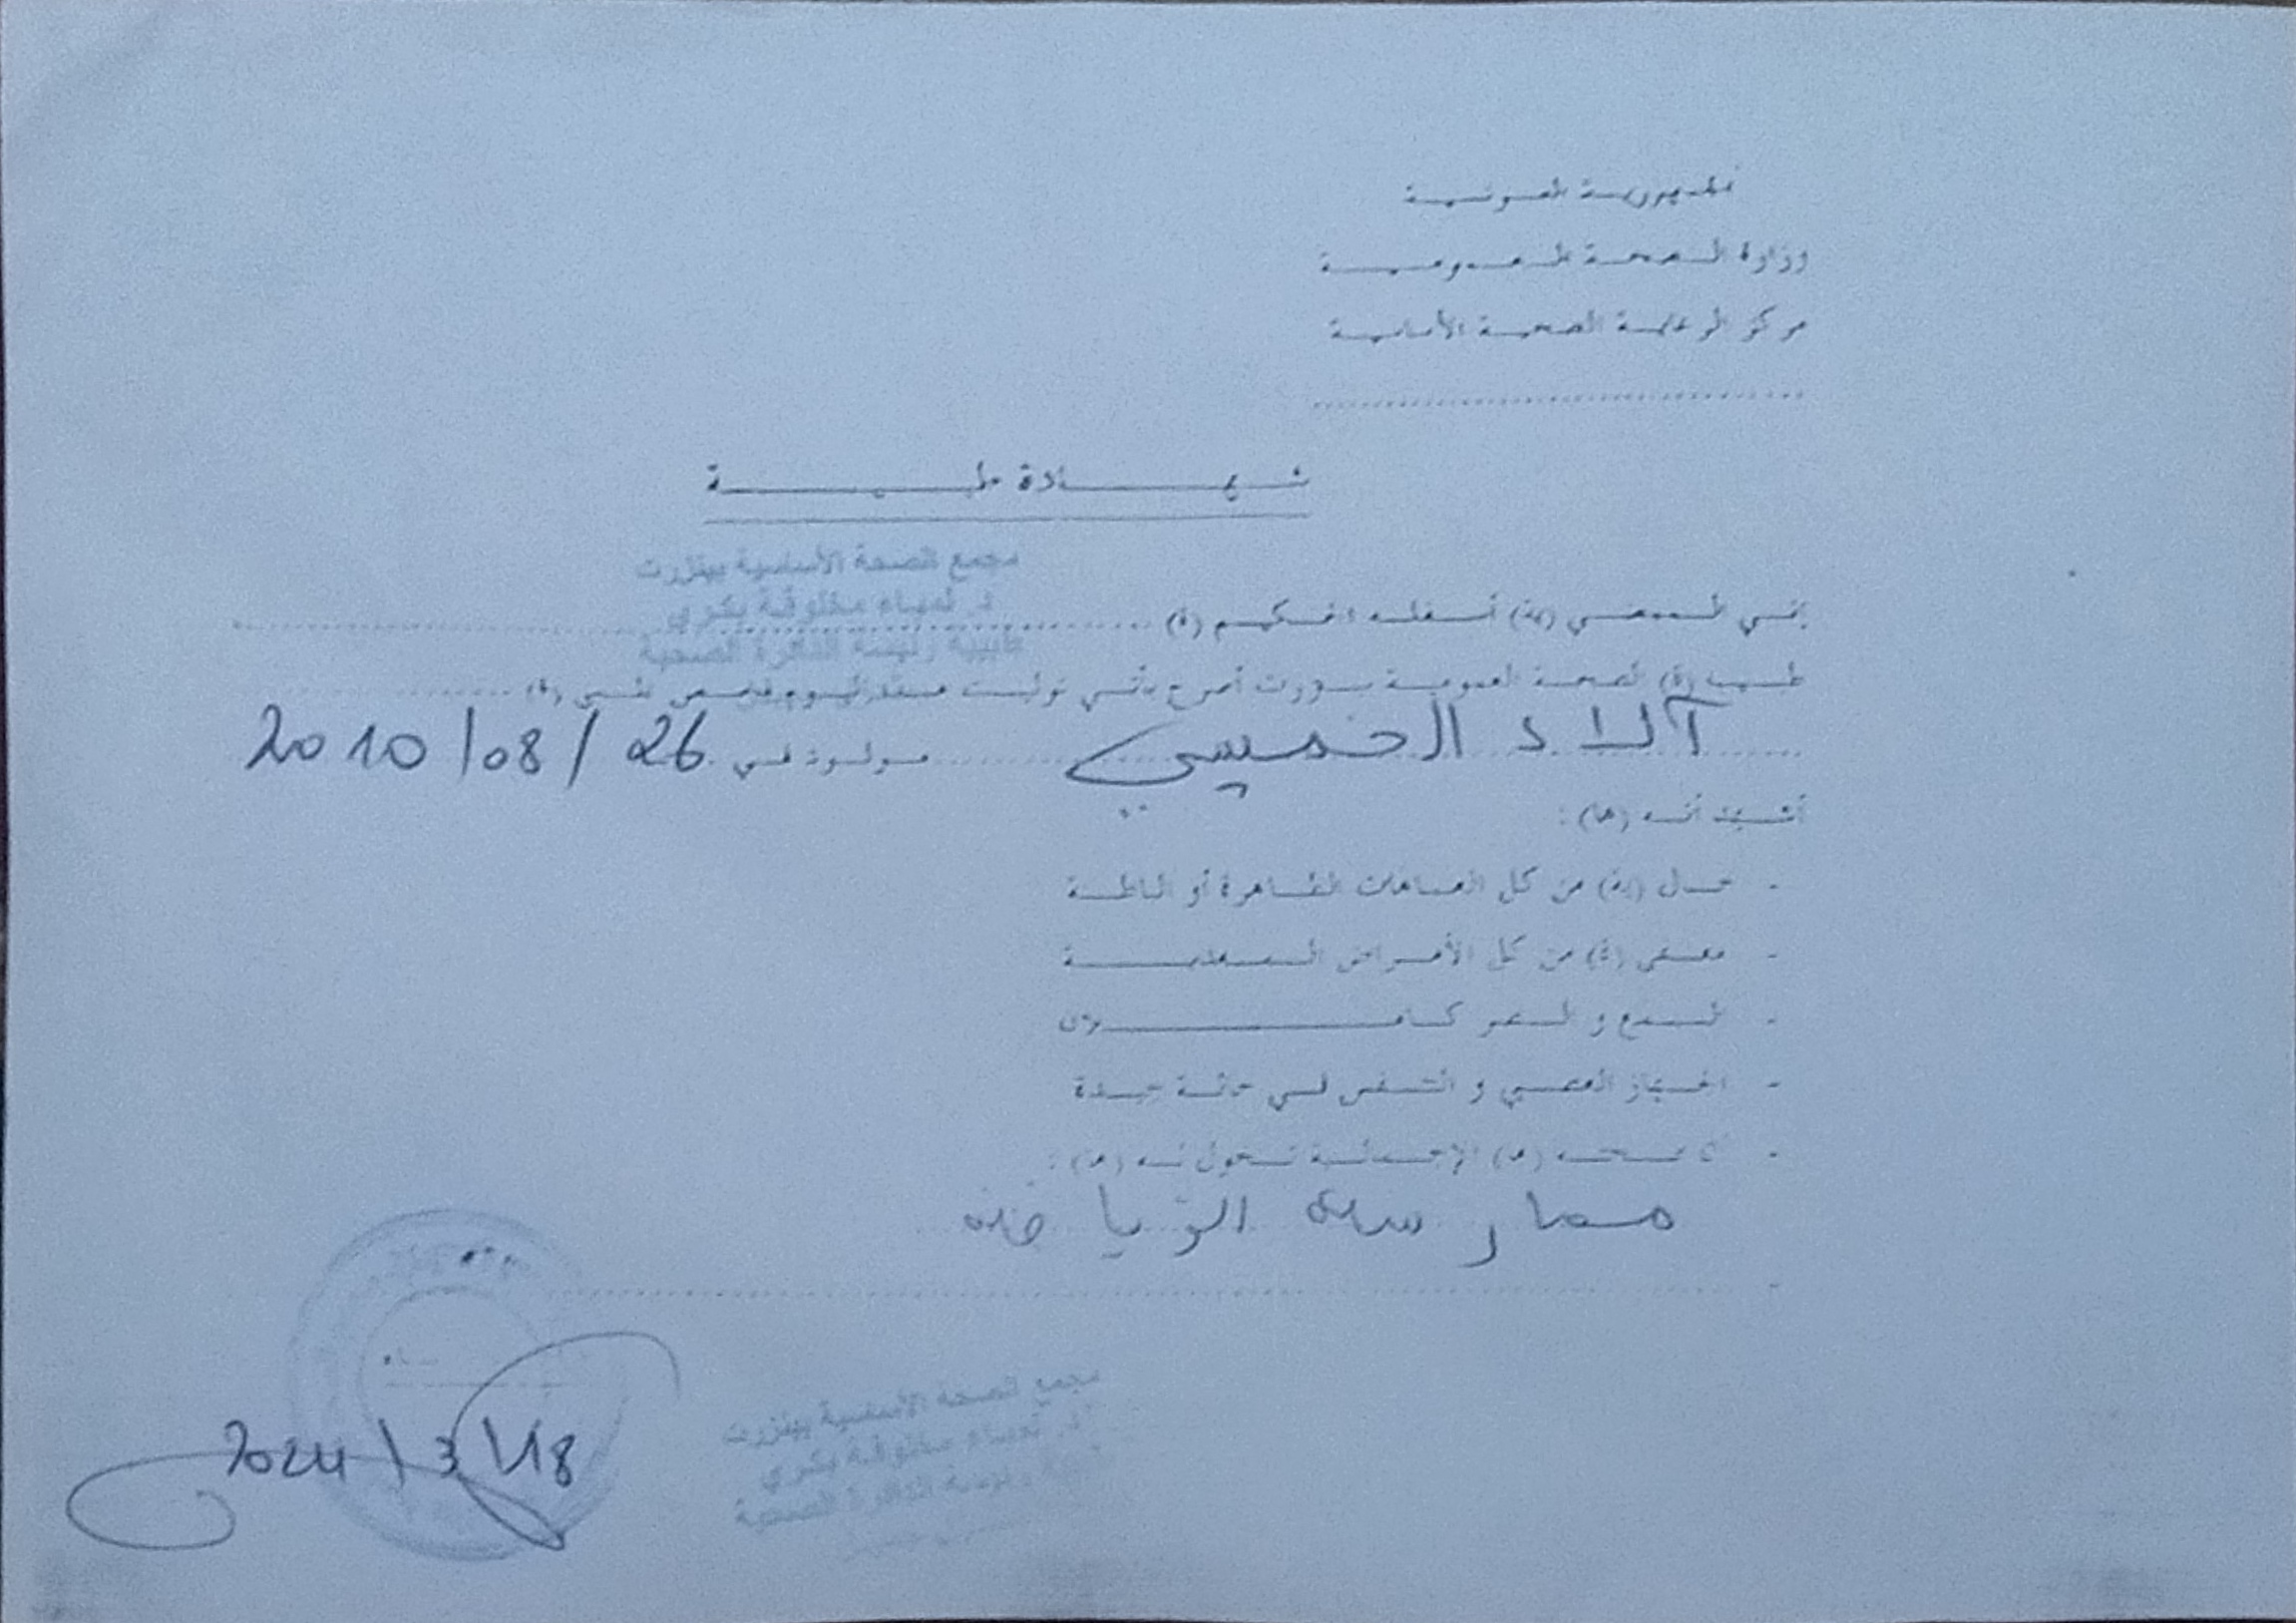 الجمهورية التونسية
وزارة الصحة العمومية
مركز الرعاية الصحية الأساسية
شهادة طبية
مجمع الصحة الأساسية ببنزرت
د. لمياء مخلوقة بكري
طبيبة رئيسة الدائرة الصحية
إني الممضي (ية) أسفله الحكيم (ة)
طبيب (ة) الصحة العمومية ببنزرت أصرح بأنني توليت هذا اليوم فحص
آلاء الخميسي مولود في 26 / 08 / 2010
أشهد أنه (ها) :
- خال (ية) من كل العاهات الظاهرة أو الباطنة
- معفى (ة) من كل الأمراض المعدية
- السمع و البصر كاملان
- الجهاز العصبي و التنفس في حالة جيدة
- صحته (ها) الإجمالية تخول له (ها) :
ممارسة الرياضة
مجمع الصحة الأساسية ببنزرت
د. لمياء مخلوقة بكري
رئيسة الدائرة الصحية
2024 / 3 / 18